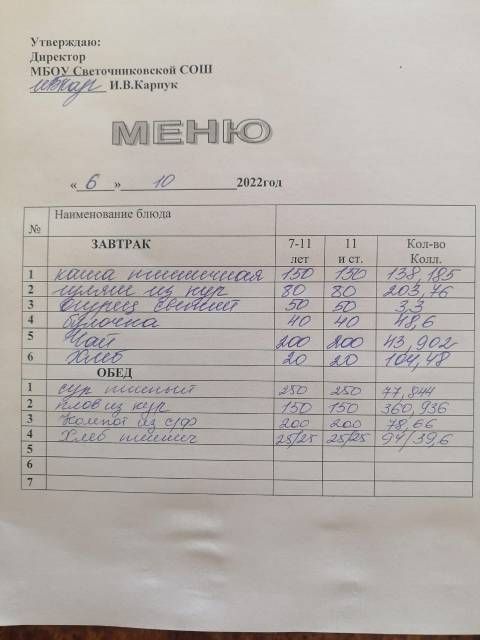 Утверждаю:
Директор
МБОУ Светочниковской СОШ
И.В.Карпук
МЕНЮ
« 6 » 10 2022год
№ Наименование блюда
ЗАВТРАК 7-11 лет 11 и ст. Кол-во Колл.
1 каша пшеничная 150 150 138,185
2 гуляш из кур 80 80 203,76
3 огурец свежий 50 50 3,3
4 булочка 40 40 48,6
5 Чай 200 200 43,902
6 Хлеб 20 20 104,48
ОБЕД
1 суп пшеный 250 250 77,844
2 плов из кур 150 150 360,936
3 Компот из с/ф 200 200 78,66
4 Хлеб пшенич 25/25 25/25 94/39,6
5
6
7